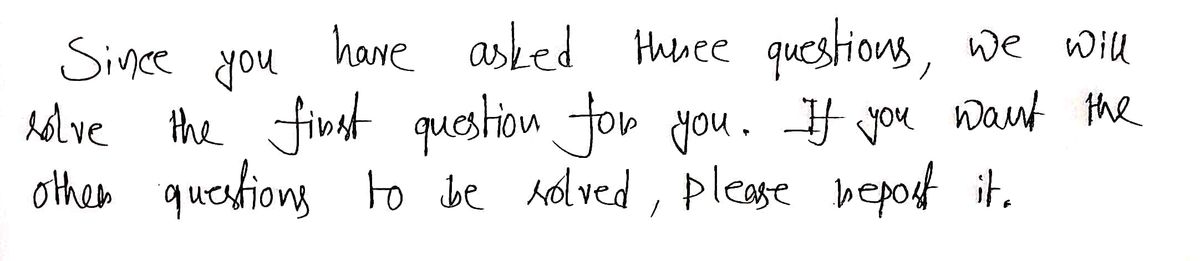 Since you have asked three questions, we will
solve the first question for you. If you want the
other questions to be solved, please repost it.